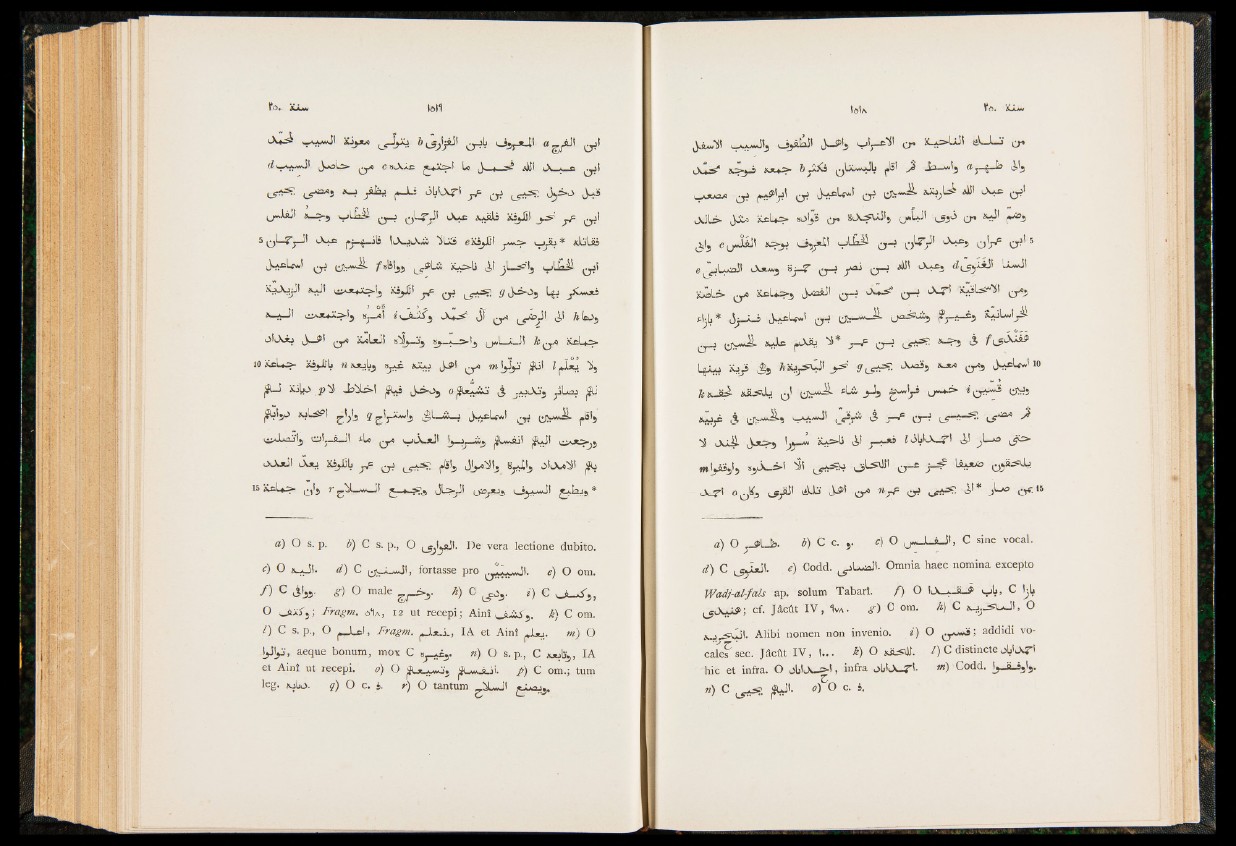 سنة ٢٥٠ ١٥١٨
من تلك الناحية من الاعراب واهل الطُّفوف والسيب الاسفل
والى ظهر a واسط ثم اقام بالبستان فكثر b جمعه فوجّه محمّد
ابن عبد الله لمحاربته الحسين بن اسماعيل بن ابراهيم بن مصعب
وضمّ اليه من ذوى البأس والنجدة من قوّاده جماعة مثل خالد
5 ابن عمران وعبد الرحمان بن الخطّاب المعروف بوجه الفُلْس c وابى
السنا الغَنَوىّ d وعبد الله بن نصر بن حمزة وسعد الضبابىّ e
ومن الاسحاقيّة احمد بن محمّد بن الفضل وجماعة من خاصّة
الخراسانيّة وغيرهم وشخص الحسين بن اسماعيل فنزل *بازاء
هفندى f فى وجه يحيى بن عمر *لا يقدم عليه الحسين بن
10 اسماعيل ومن معه وقصد يحيى g نحو البحريّة h وهى قرية بينها
وبين قُسِّين i خمسة فراسخ ولو شاء الحسين ان يلحقه لحقه k
ثم مضى يحيى بن عمر فى شرقىّ السيب والحسين فى غربيّه
حتى صار الى احمداباذ l فعبر الى ناحية سُورا وجعل الجند لا
يلحقون ضعيفا عجز عن اللحاق بيحيى الّا اخذوه واوقعوا m
15 بمن صار *الى يحيى بن عمر n من اهل تلك القرى وكان o احمد
a) O ظـاهـر. b) C c. و. c) O الفلس, C sine vocal.
d) C العنوى. e) Codd. الصبابى. Omnia haec nomina excepto
Wadj-al-fals ap. solum Tabarî.
cf. Jâcût IV, ٩٧٨. g) C om.
Alibi nomen non invenio. addidi vo-
cales sec. Jâcût IV, ١٠٠. k) O لحقه. l) C distincte احمداباد
hic et infra. m) Codd. واوقفوا.
n) C اليهم يحيى. o) O c. ف.
١٥١٩ سنة ٢٥٠
ابن الفرج a المعروف بابن الفزارىّ b يتولّى معونة السيب لمحمّد
ابن عبد الله فحمل ما اجتمع عنده c من حاصل السيب d
قبل دخول يحيى بن عمر احمداباذ فلم يظفر به ومضى يحيى
ابن عمر نحو الكوفة فلقيه عبد الرحمان بن الخطّاب وجه الفلس
5 فقاتله *بقرب جسر الكوفة e قتالا شديدا فانهزم عبد الرحمان
ابن الخطّاب وانحاز الى ناحية شاهى ووافاه f الحسين بن اسماعيل
فعسكر بها ودخل g يحيى بن عمر الكوفة واجتمعت اليه الزيديّة
ودعا h الى الرضى من آل محمّد وكَثُف i أمره واجتمعت اليه
جماعة من k الناس واحبّوه وتولّاه العامّة من اهل بغداد
10 ولا يُعْلَم l انهم تولّوا m من اهل بيته غيره وبايعه n بالكوفة جماعة
لهم بصائر وتدبير فى تشيّعهم o ودخل فيهم اخلاط لا p ديانة لهم
واقام الحسين بن اسماعيل بشاهى واستراح q واراح اصحابه دوابّهم
ورجعت اليهم انفسهم وشربوا العذب من ماء الفرات واتّصلت
بهم الامداد والميرة والاموال واقام يحيى بن عمر بالكوفة يعدّ العدد
15 *ويطبع السيوف ويعرض الرجال ويجمع السلاح r وانّ جماعة
a) O s. p. b) C s. p., O الفوارى. De vera lectione dubito.
c) O اليه. d) C السنين, fortasse pro السيبَيْن. e) O om.
f) C ووافى. g) O male وخرج. h) C ودعى. i) C وكنف,
O وكثف; Fragm. ٥٦٨, 12 ut recepi; Ainî وكشف. k) C om.
l) C s. p., O اعلم, Fragm. نعلم, IA et Ainî يعلم. m) O
توالوا, aeque bonum, mox C وغيره. n) O s. p., C وتابعه, IA
et Ainî ut recepi. p) C om.; tum
leg. ديانه. q) O c. ف. r) O tantum ويصنع السلاح.